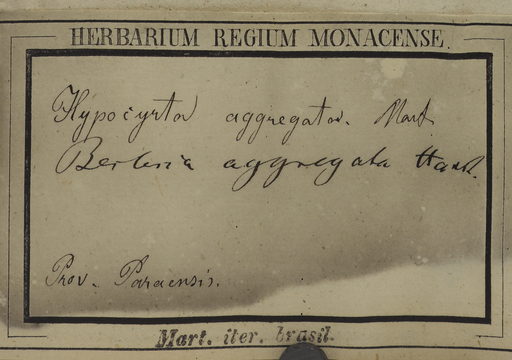 HERBARIUM REGIUM MONACENSE.
Hypocyrta aggregata. Mart
Besleria aggregata Hanst.
Prov. Paraensis.
Mart. iter. brasil.